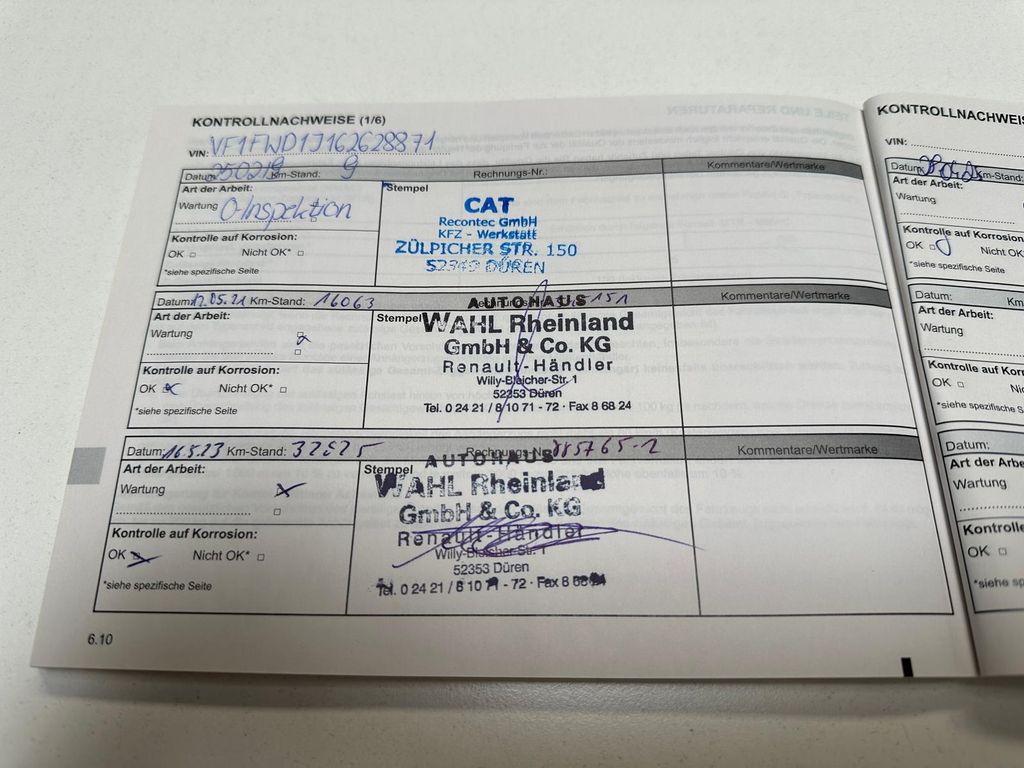 KONTROLLNACHWEISE (1/6)
VIN: VF1FWD1J162628871
Datum: 250219 Km-Stand: 9 Rechnungs-Nr.: Kommentare/Wertmarke
Art der Arbeit: Stempel
Wartung 0-Inspektion
CAT
Recontec GmbH
KFZ - Werkstatt
ZÜLPICHER STR. 150
52349 DÜREN
Kontrolle auf Korrosion:
OK Nicht OK*
*siehe spezifische Seite
Datum: 17.05.21 Km-Stand: 16063 Kommentare/Wertmarke
Art der Arbeit: Stempel
Wartung
AUTOHAUS
WAHL Rheinland
GmbH & Co. KG
Renault-Händler
Willy-Bleicher-Str. 1
52353 Düren
Tel. 0 24 21 / 8 10 71 - 72 · Fax 8 68 24
Kontrolle auf Korrosion:
OK Nicht OK*
*siehe spezifische Seite
Datum: 16.5.23 Km-Stand: Rechnungs-Nr. Kommentare/Wertmarke
Art der Arbeit: Stempel
Wartung
AUTOHAUS
WAHL Rheinland
GmbH & Co. KG
Renault-Händler
Willy-Bleicher-Str. 1
52353 Düren
Tel. 0 24 21 / 8 10 71 - 72 · Fax 8
Kontrolle auf Korrosion:
OK Nicht OK*
*siehe spezifische Seite
6.10
KONTROLLNACHWEIS
VIN:
Datum Km-Stand:
Art der Arbeit:
Wartung
Kontrolle auf Korrosion:
OK Nicht OK
*siehe spezifische Seite
Datum: Km
Art der Arbeit:
Wartung
Kontrolle auf Korros
OK Nicht
*siehe spezifische Se
Datum:
Art der Arb
Wartung
Kontrolle
OK
*siehe sp